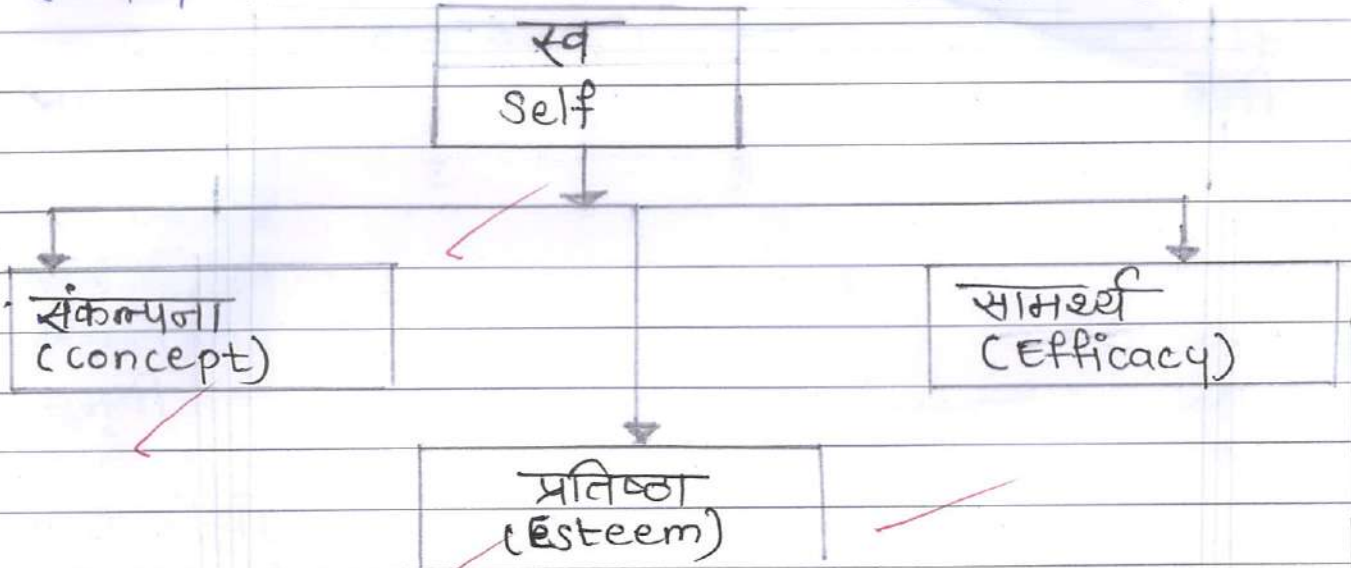 स्व
Self
संकल्पना
(concept)
सामर्थ्य
(Efficacy)
प्रतिष्ठा
(Esteem)